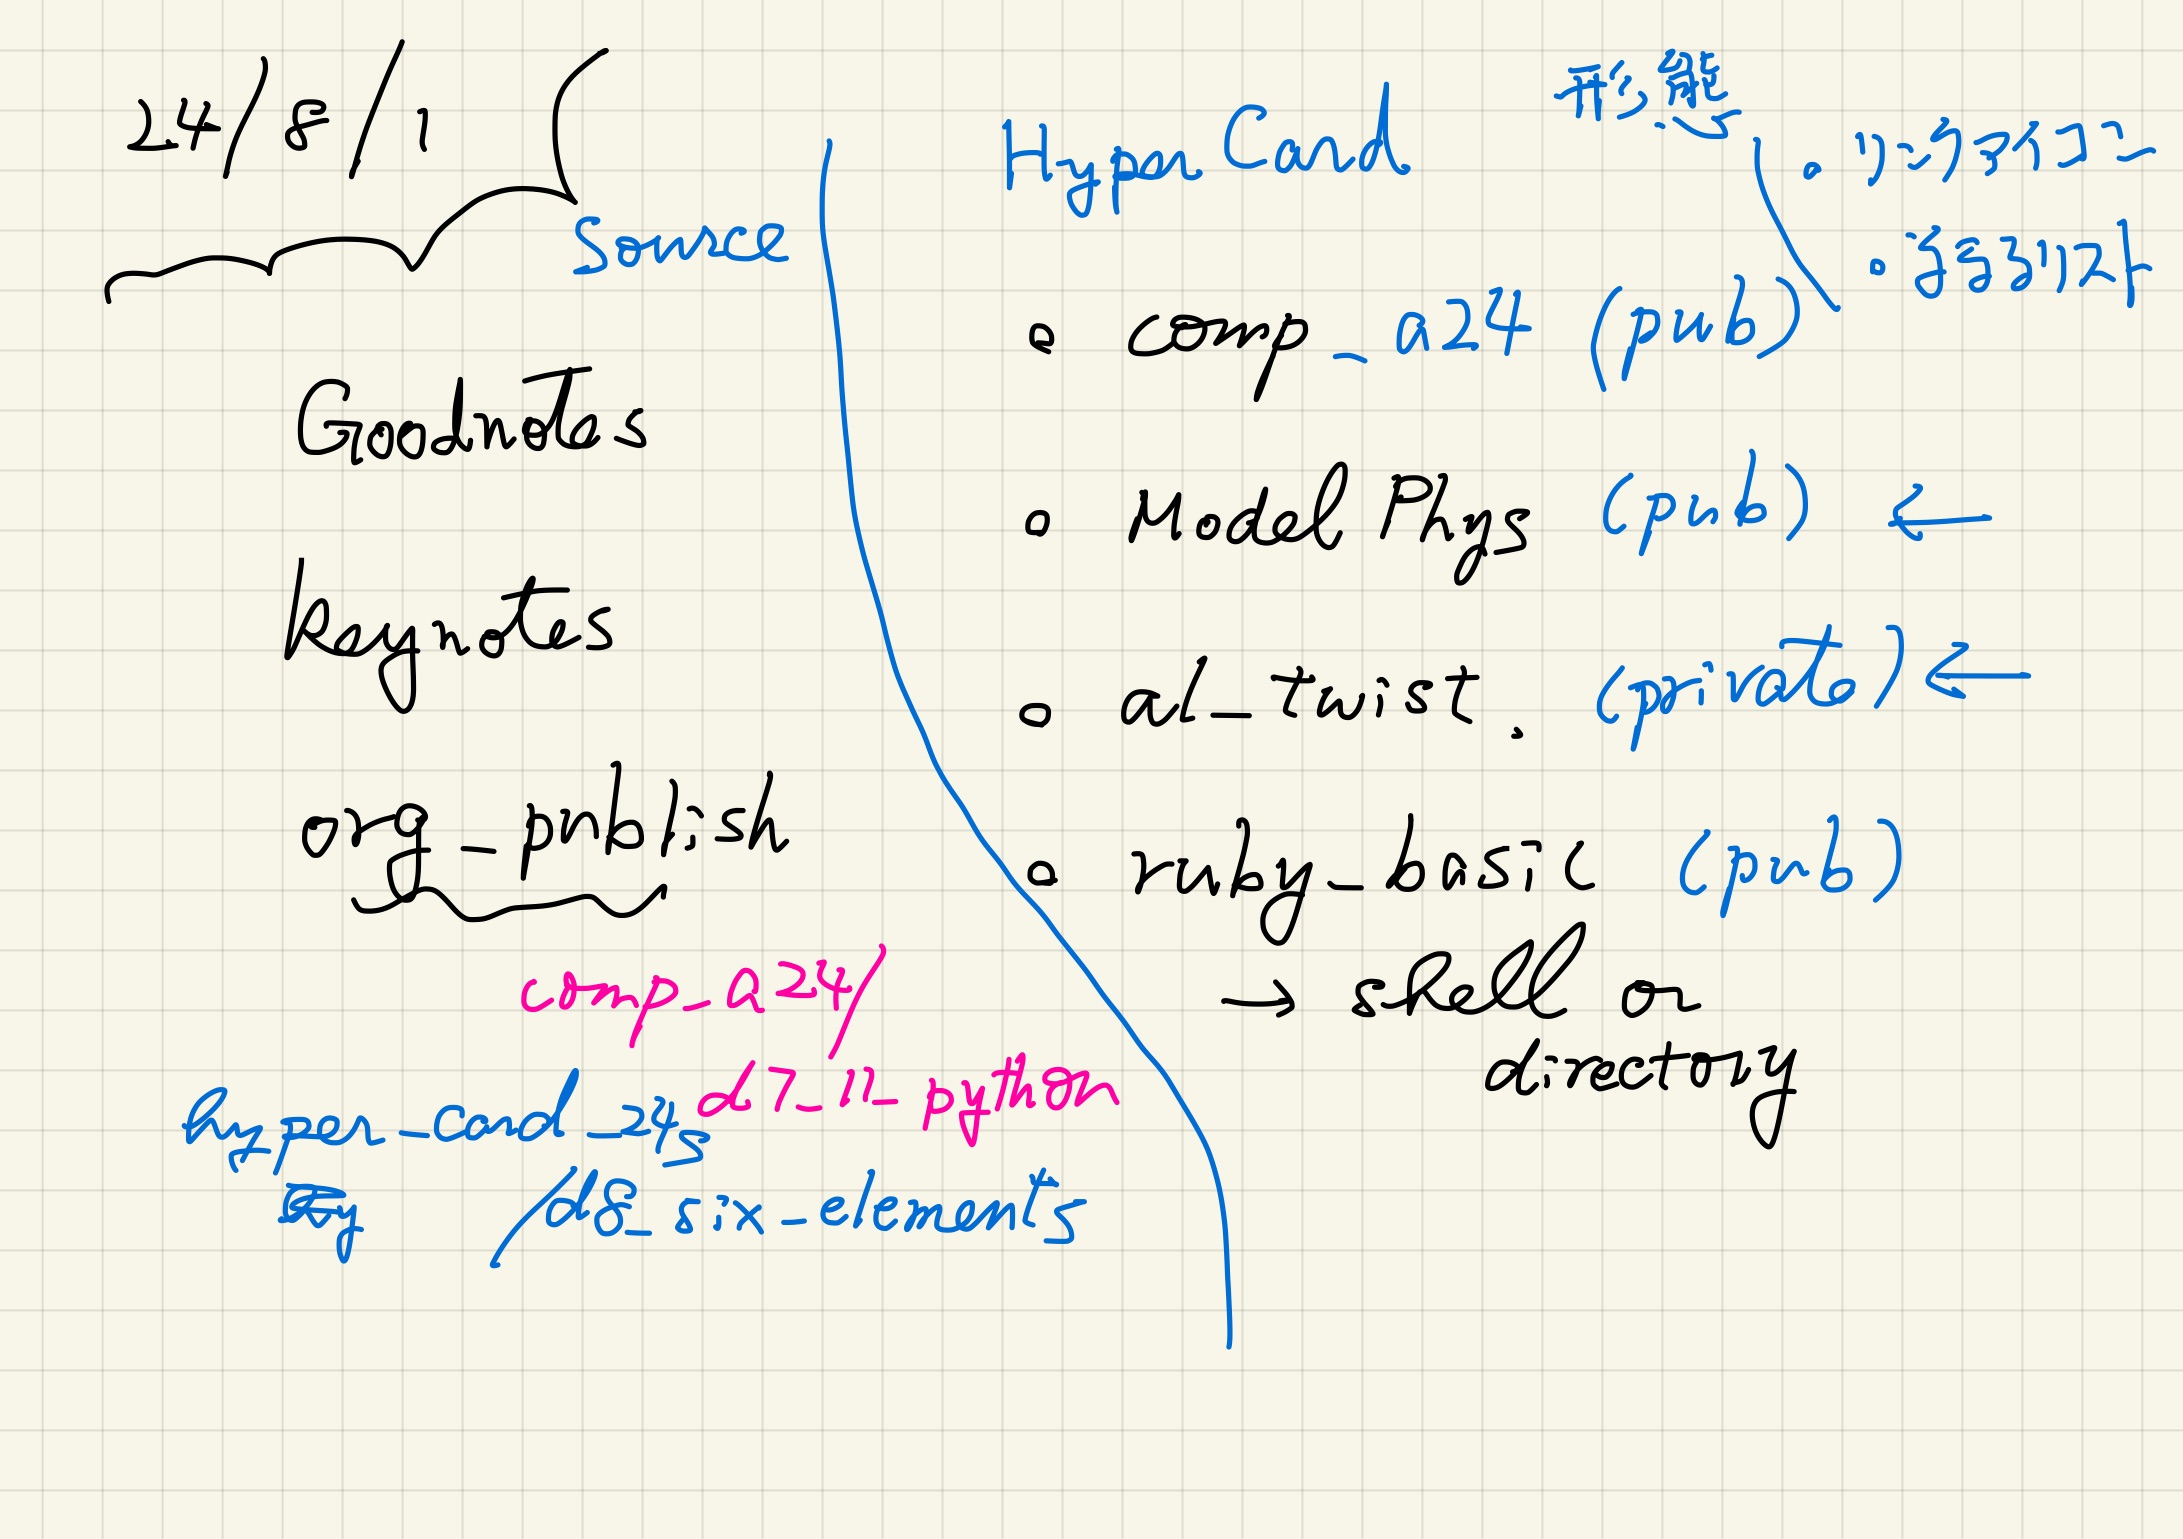 24/8/1
Source
Goodnotes
keynotes
org_publish
comp_a24/
d7_11_python
hyper_card_24s
/d8_six_elements
Hyper Card
形態
• リンクアイコン
• 文字列リスト
• comp_a24 (pub)
• Model Phys (pub) ←
• al_twist. (private) ←
• ruby_basic (pub)
→ shell or
directory